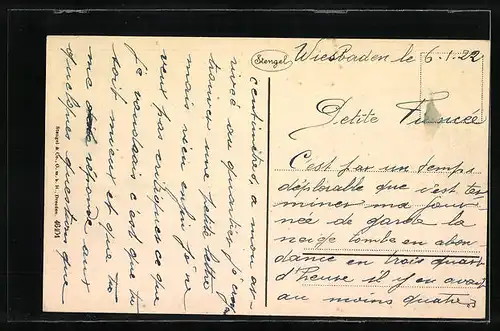 Wiesbaden le 6-1.22
Petite Fiancée
C'est par un temps
déplorable que c'est ter
miner ma jour
née de garde la
neige tombe en abon
dance en trois quart
d'heure il y en avait
au moins quatre
centimètres, a mon ar
rivée au quartier
une petite lettre
mais rien enfin je ne
veut pas critiquer ce que
je voudrais c'est que tu
soit mieux et que tu
me réponse aux
quelques questions que
Stengel
Stengel & Co., G. m. b. H., Dresden.